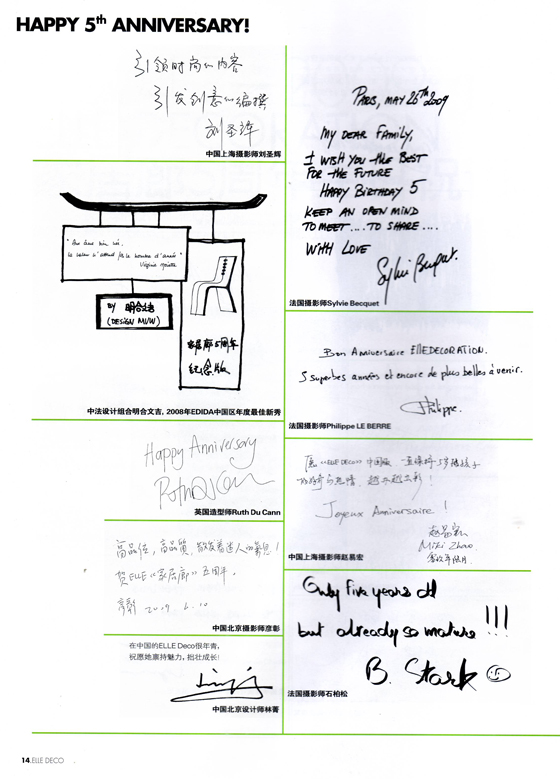 HAPPY 5th ANNIVERSARY!
引领时尚的内容
引发创意的编撰
刘圣辉
中国上海摄影师刘圣辉
BY 明合文吉
(DESIGN MVW)
家居廊5周年
纪念版
中法设计组合明合文吉, 2008年EDIDA中国区年度最佳新秀
Happy Anniversary
Ruth Du Cann
英国造型师Ruth Du Cann
高品位, 高品质, 散发着迷人的气息!
贺ELLE《家居廊》五周年.
2009.6.10
中国北京摄影师彦彰
在中国的ELLE Deco很年青,
祝愿她禀持魅力, 抱壮成长!
中国北京设计师林菁
PARIS, MAY 26TH 2009
MY DEAR FAMILY,
I WISH YOU THE BEST
FOR THE FUTURE
HAPPY BIRTHDAY 5
KEEP AN OPEN MIND
TO MEET .... TO SHARE ....
WITH LOVE
Sylvie Becquet.
法国摄影师Sylvie Becquet
Bon Anniversaire ELLE DECORATION.
5 superbes années et encore de plus belles à venir.
Philippe.
法国摄影师Philippe LE BERRE
《ELLE DECO》中国版 一直保持5岁孩子
的好奇与热情, 越来越出彩!
Joyeux Anniversaire!
赵易宏
Miki Zhao
中国上海摄影师赵易宏
Only five years old
but already so mature !!!
B. Stark
法国摄影师石柏松
14 ELLE DECO